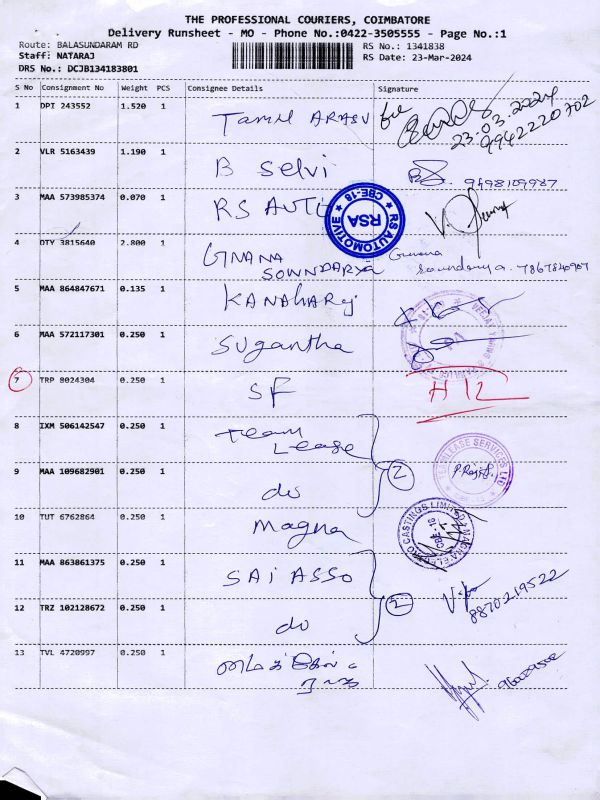 THE PROFESSIONAL COURIERS, COIMBATORE
Delivery Runsheet - MO - Phone No.:0422-3505555 - Page No.:1
Route: BALASUNDARAM RD
RS No.: 1341838
Staff: NATARAJ
RS Date: 23-Mar-2024
DRS No.: DCJB134183801
S No Consignment No Weight PCS Consignee Details Signature
1 DPI 243552 1.520 1 Tamil ARASU
23.03.2024
9942220702
2 VLR 5163439 1.190 1 B Selvi 9498109987
3 MAA 573985374 0.070 1 RS AUTO
RS AUTOMOTIVE
CBE-18
RSA
4 DTY 3815640 2.800 1 GNANA
SOWNDARYA
Gnana
Soundarya. 7867840907
5 MAA 864847671 0.135 1 KANAHARAJ
6 MAA 572117301 0.250 1 Sugantha
7 TRP 8024304 0.250 1 SF H12
8 IXM 506142547 0.250 1 Team
Lease
2
TEAMLEASE SERVICES LTD
9 MAA 109682901 0.250 1 do
10 TUT 6762864 0.250 1 Magna
MAGNA ELECTRO CASTINGS LIMITED
CBE-18
11 MAA 863861375 0.250 1 SAI ASSO
2
8870219522
12 TRZ 102128672 0.250 1 do
13 TVL 4720997 0.250 1